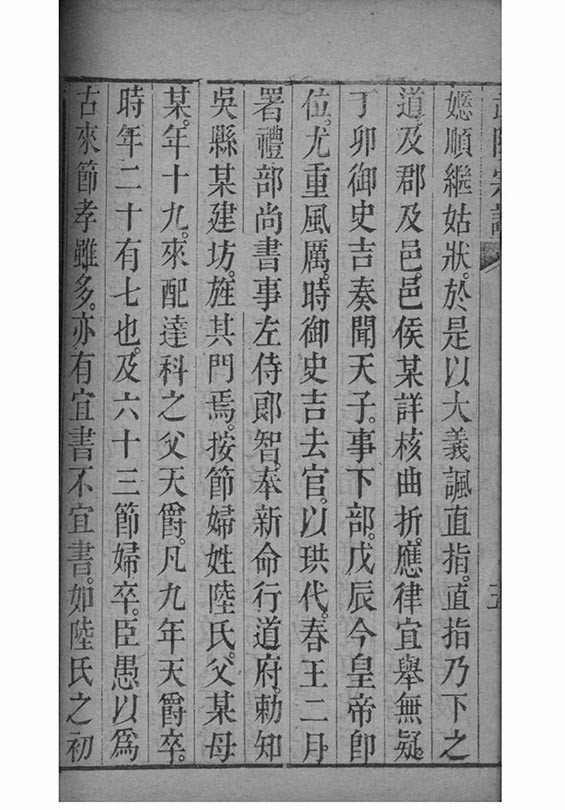 嬺順繼姑狀。於是以大義諷直指。直指乃下之
道及郡及邑。邑侯某詳核曲折。應律宜舉無疑。
丁卯御史吉奏聞天子。事下部。戊辰今皇帝卽
位。尤重風厲。時御史吉去官。以珙代。春王二月。
署禮部尚書事左侍郎智。奉新命行道府。勅知
吳縣某建坊。旌其門焉。按節婦姓陸氏。父某母
某。年十九。來配達科之父天爵。凡九年天爵卒。
時年二十有七也。及六十三節婦卒。臣愚以爲
古來節孝雖多。亦有宜書不宜書。如陸氏之初